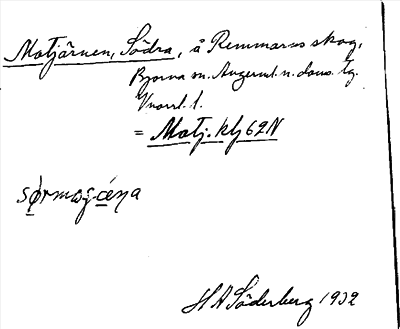 Motjärnen, Södra, å Remmarns skog,
Bjorna sn. Angerml. n. doms. tg.
Vnorrl. l.
= Motj. kfj 62N
sørmog-céṇa
H A Söderberg 1932